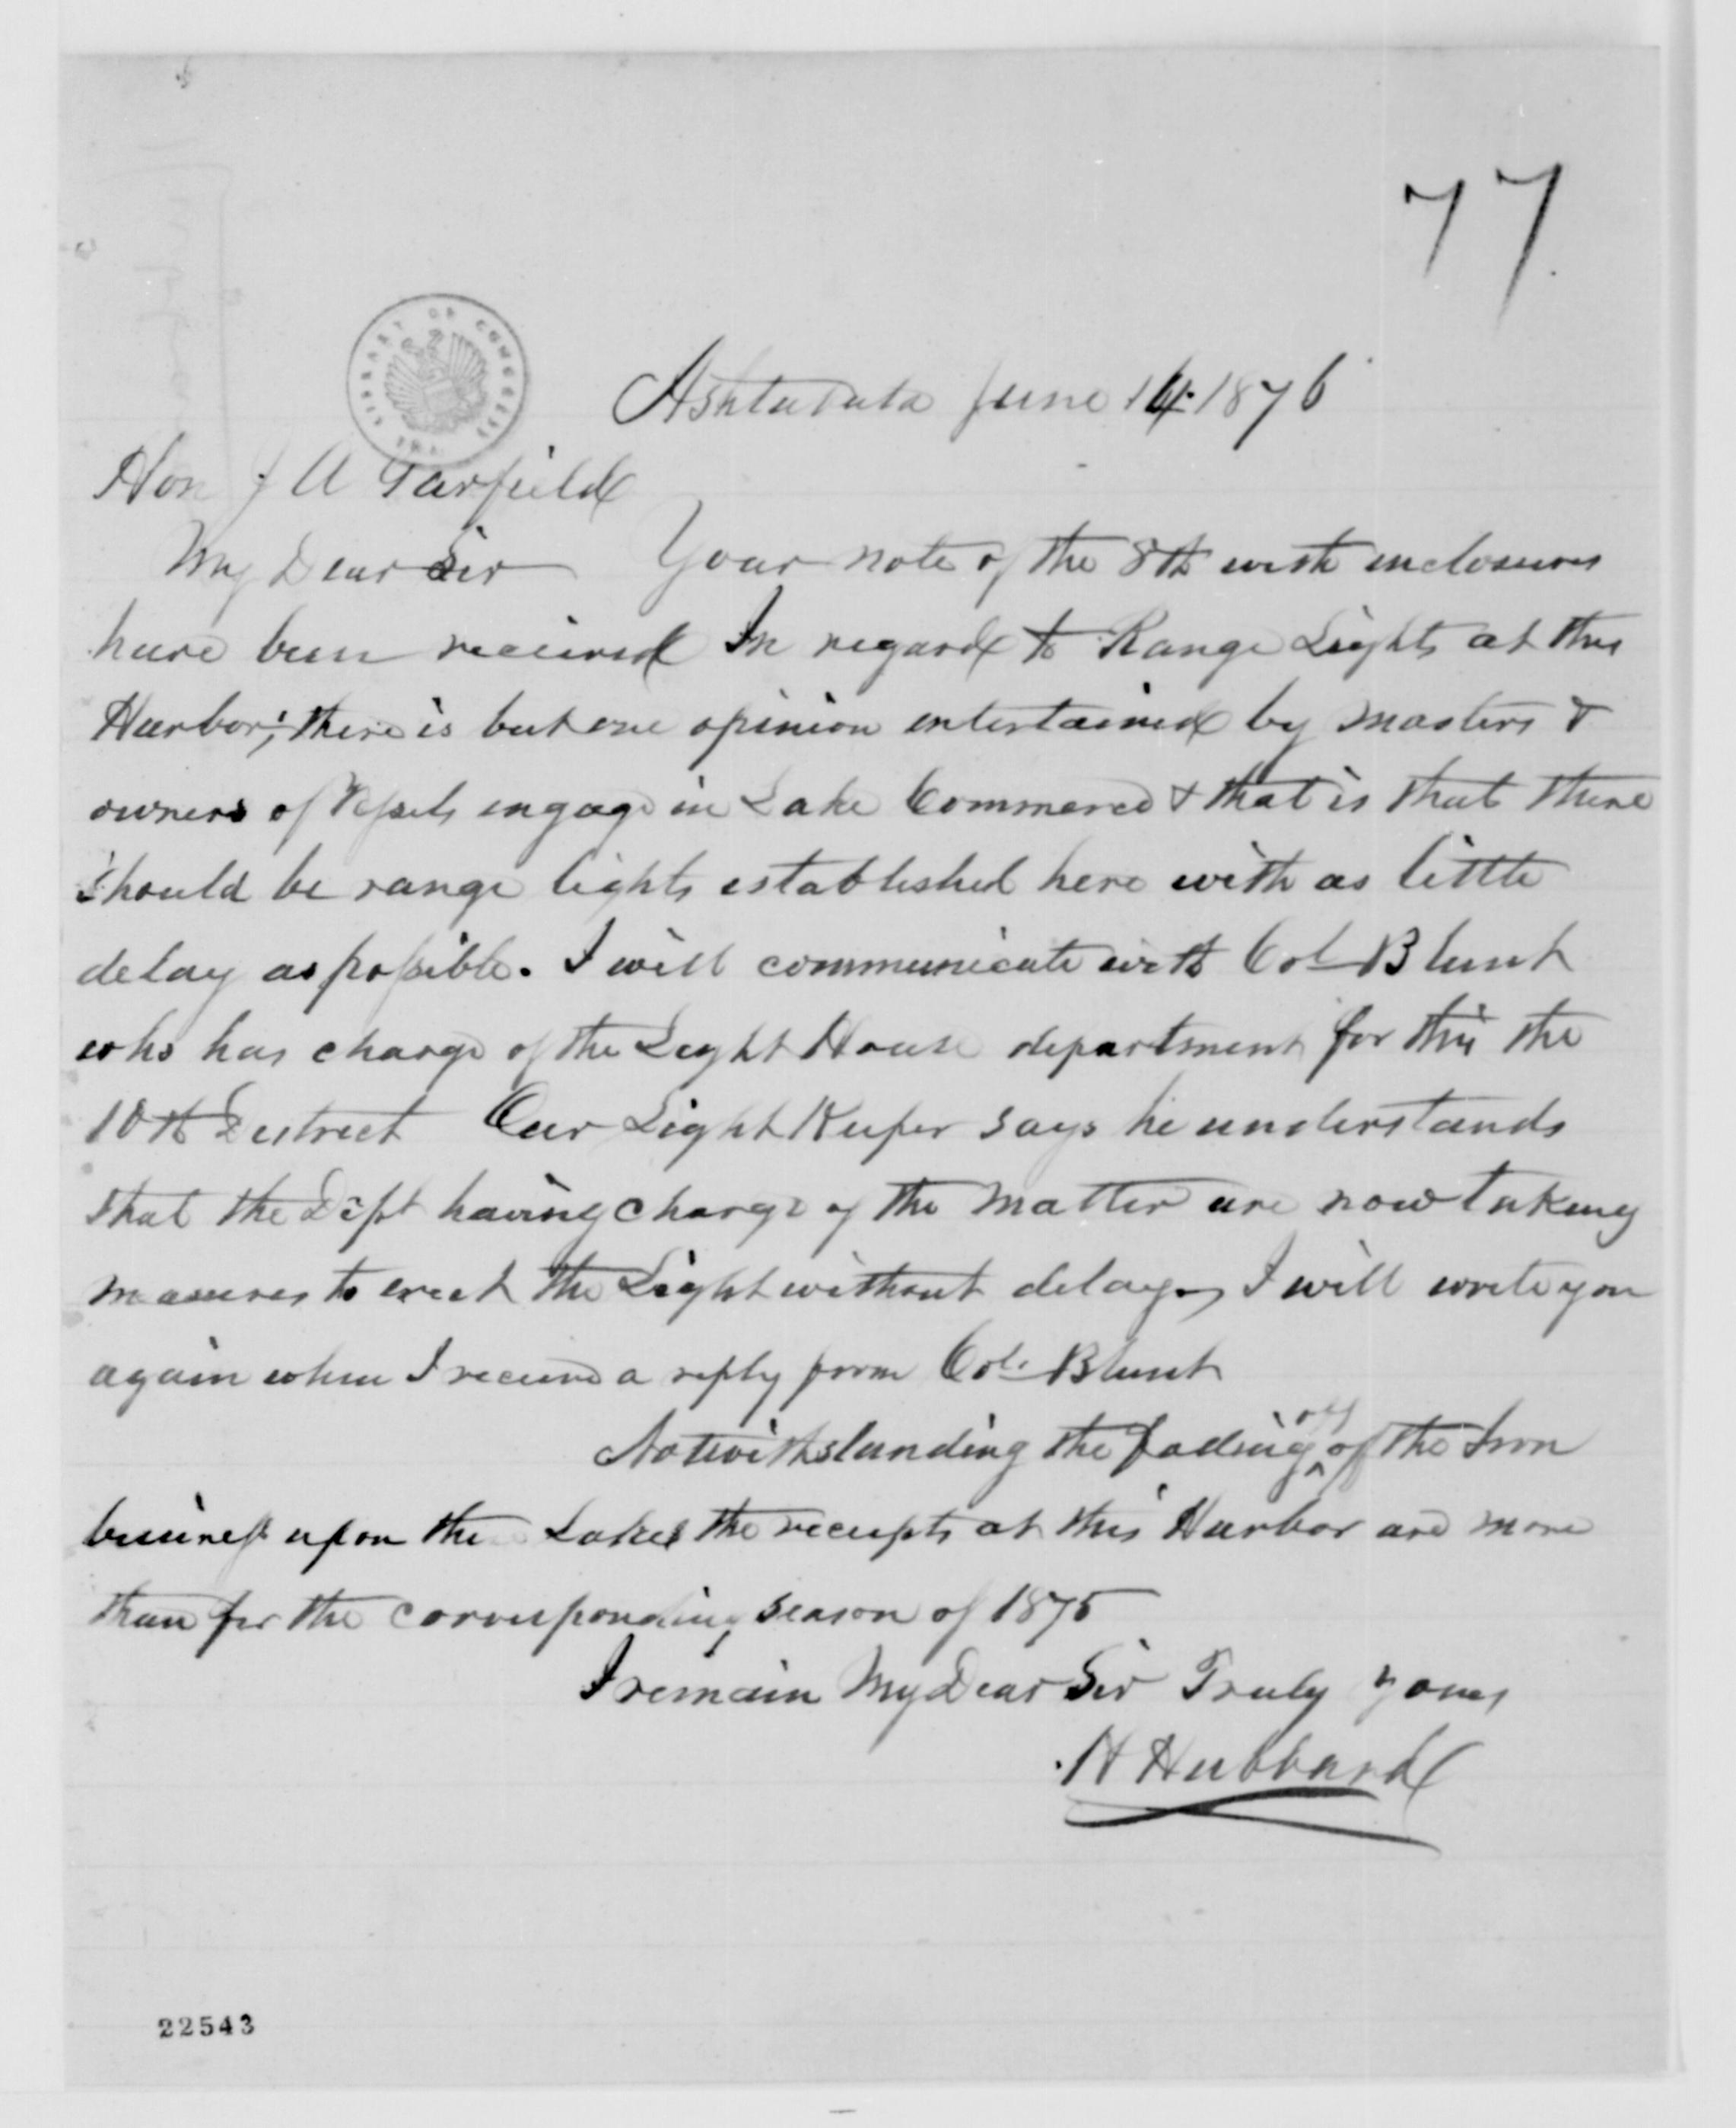 77
LIBRARY OF CONGRESS
Ashtabula June 14. 1876
Hon J A Garfield
My Dear Sir Your note of the 8th with inclosures
have been recieved In regard to Range Lights at this
Harbor; there is but one opinion entertained by masters &
owners of Vessels engage in Lake Commerce & that is that there
should be range lights established here with as little
delay as possible. I will communicate with Col Blunt
who has charge of the Light House department for this the
10th District Our Light Keeper says he understands
that the Dept having charge of the matter are now taking
measures to erect the Light without delay I will write you
again when I receive a reply from Col. Blunt
Notwithstanding the fading off of the Iron
business upon the Lakes the receipts at this Harbor are more
than for the corresponding season of 1875
I remain My Dear Sir Truly yours
H Hubbard
22543